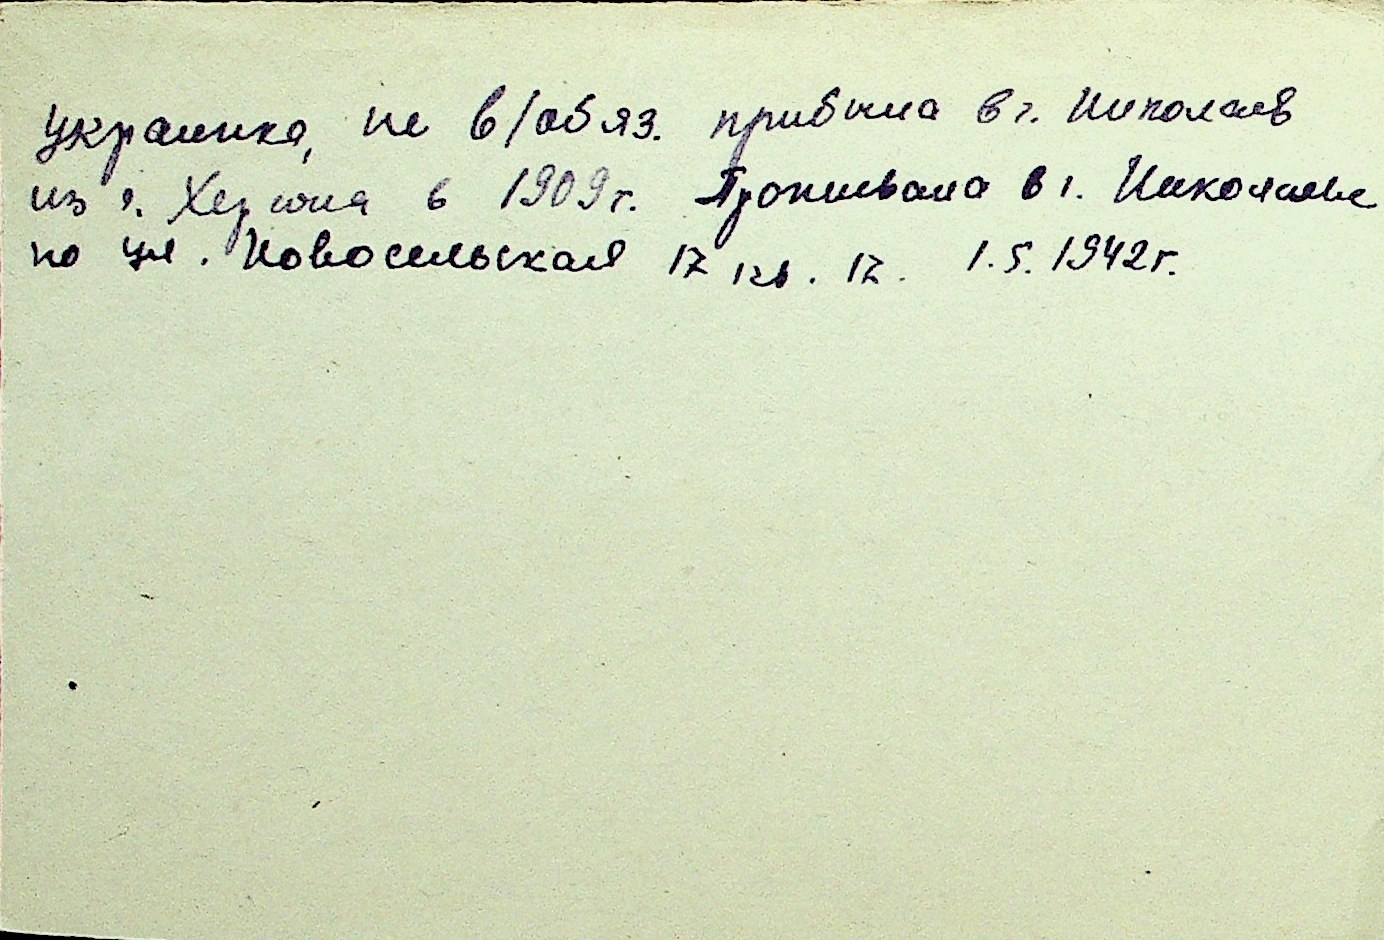 украинка, не в/обяз. прибыла в г. Николаев
из г. Херсона в 1909г. Проживала в г. Николаеве
по ул. Новосельская 17 кв. 17. 1.5.1942г.